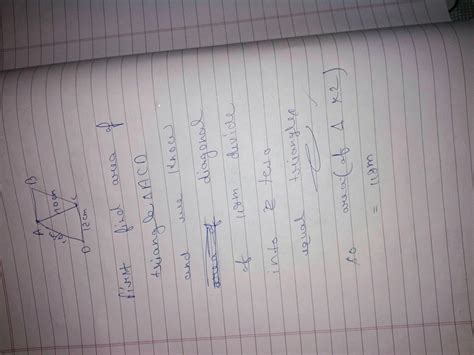 A
B
10cm
C
D
12cm
first find area of
triangle ΔACD
and we know
diagonal
of ||gm divide
into 2 two
equal triangles
so area (of Δ x2)
= ||gm